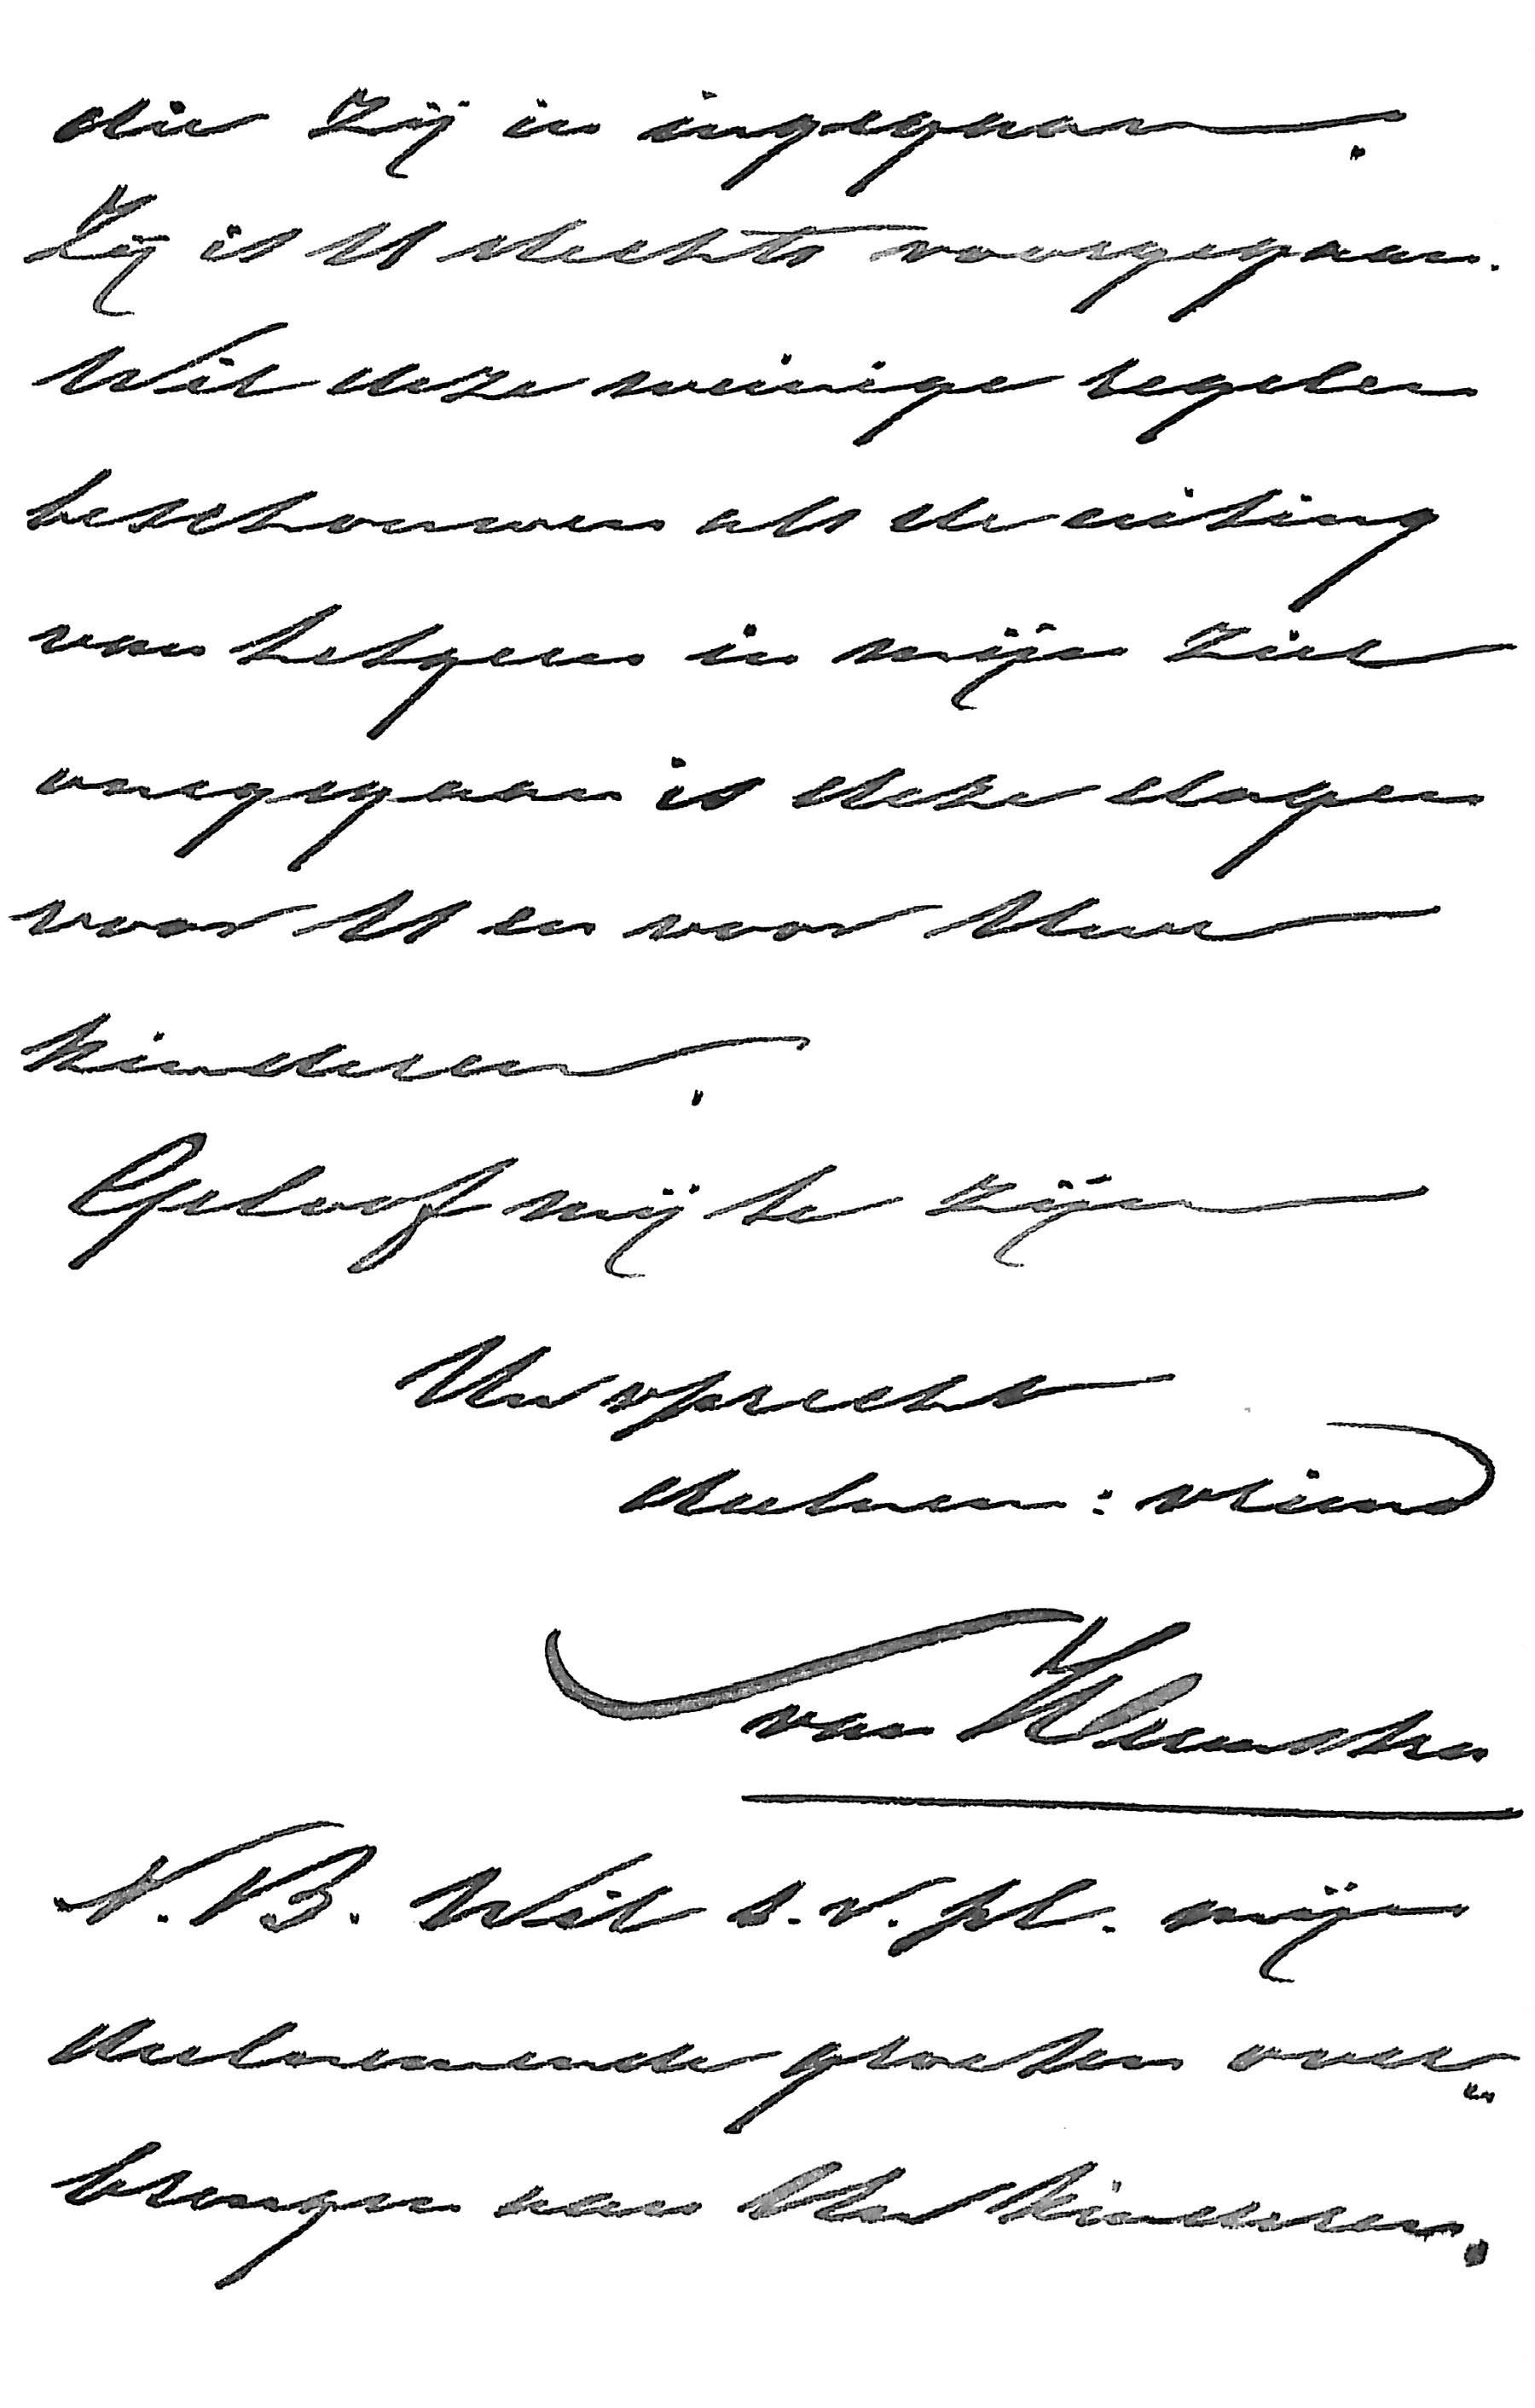 die zij is ingegaan.
Zij is U slechts voorgegaan.
Wil deze weinige regelen
beschouwen als de uiting
van hetgeen in mijn ziel
omgegaan is deze dagen
voor U en voor Uwe
kinderen.
Geloof mij te zijn
Uw oprecht
deelnem: vriend
van
N.B. Wil s.v.pl. mijn
deelnemende groeten over„
brengen aan Uw kinderen.